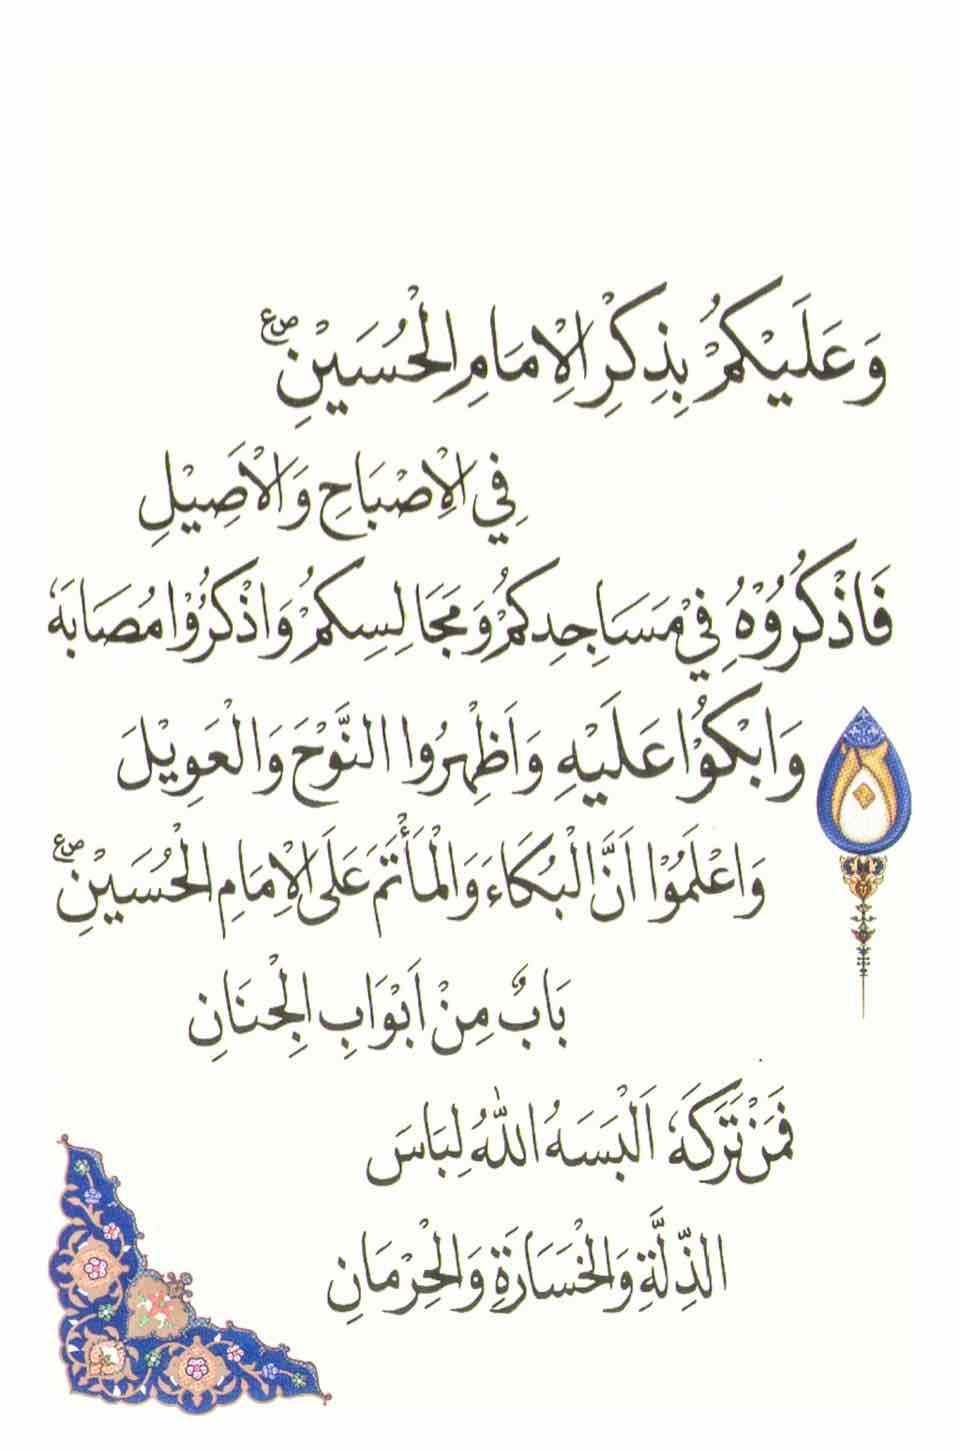 وَعَلَيْكُمْ بِذِكْرِ الْاِمَامِ الْحُسَيْنِ ص ع
فِي الْاِصْبَاحِ وَالْاَصِيْلِ
فَاذْكُرُوْهُ فِيْ مَسَاجِدِكُمْ وَمَجَالِسِكُمْ وَاذْكُرُوْا مُصَابَهٗ
وَابْكُوْا عَلَيْهِ وَاَظْهِرُوا النَّوْحَ وَالْعَوِيْلَ
وَاعْلَمُوْا اَنَّ الْبُكَاءَ وَالْمَأْتَمَ عَلَى الْاِمَامِ الْحُسَيْنِ ص ع
بَابٌ مِنْ اَبْوَابِ الْجِنَانِ
فَمَنْ تَرَكَهٗ اَلْبَسَهُ اللّٰهُ لِبَاسَ
الذِّلَّةِ وَالْخَسَارَةِ وَالْحِرْمَانِ